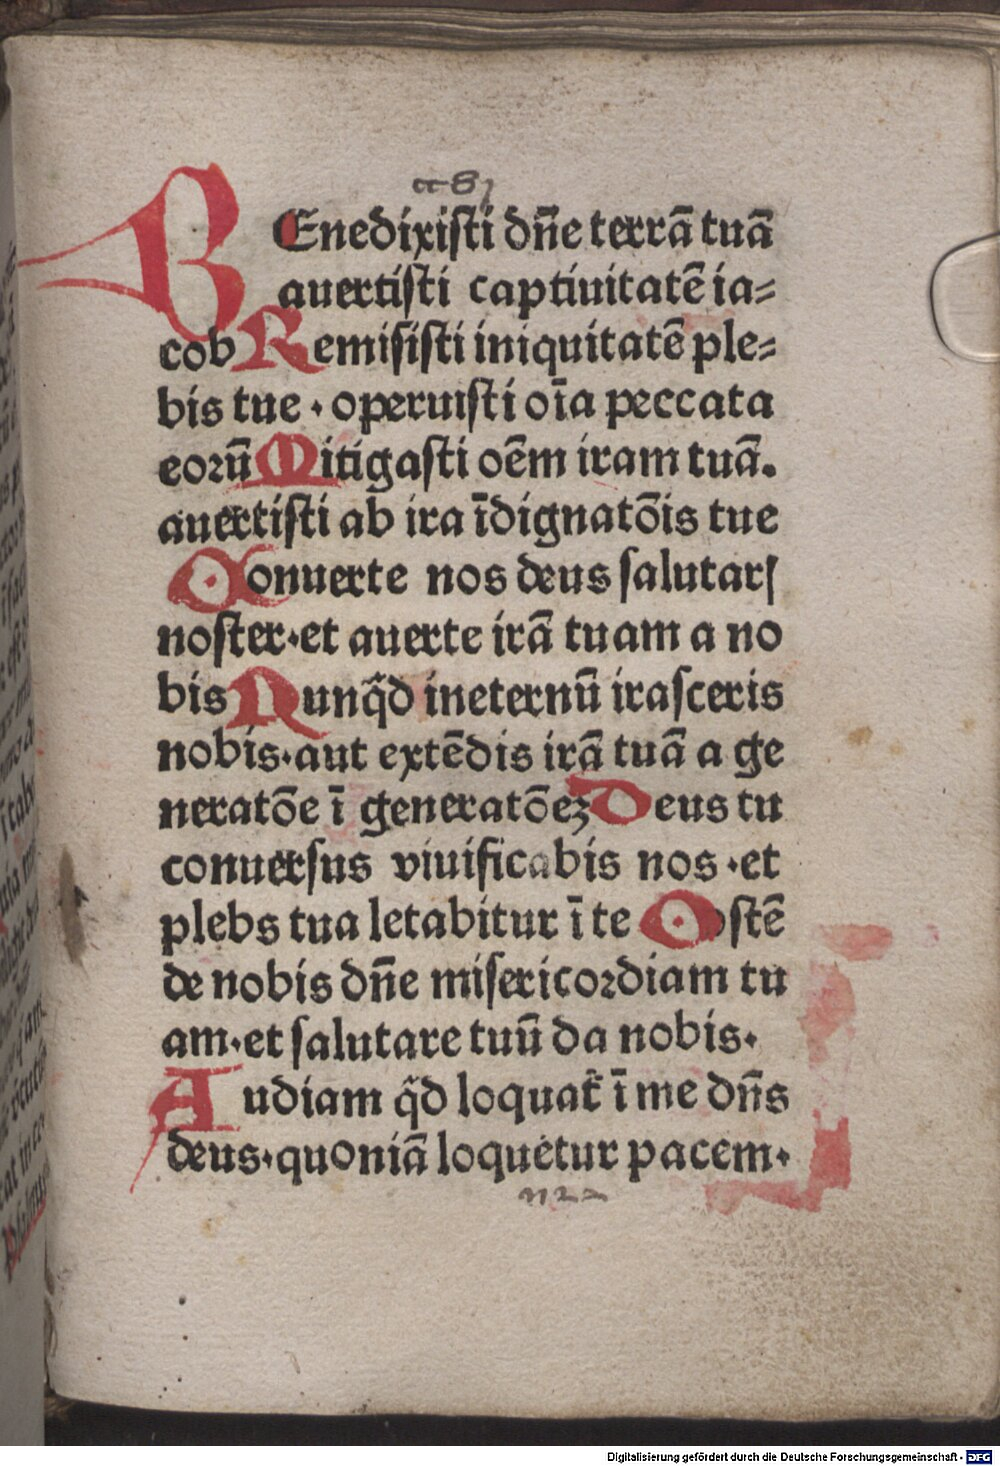 BEnedixisti dñe terrã tuã
auertisti captiuitatē ia⸗
cob Remisisti iniquitatē ple⸗
bis tue · operuisti oīa peccata
eoꝛū Mitigasti oēm iram tuã.
auertisti ab ira īdignatōis tue
Conuerte nos deus ſalutarſ
noſter·et auerte irã tuam a no
bis Nunq̃d ineternū iraſceris
nobis·aut extēdis irã tuã a ge
neratōe ī generatōeꝫ Deus tu
conuerſus viuificabis nos ·et
plebs tua letabitur ī te Oſtē
de nobis dñe miſericoꝛdiam tu
am·et ſalutare tuū da nobis·
Audiam q̃d loquat᷑ ī me dñs
deus·quoniã loquetur pacem·
Digitalisierung gefördert durch die Deutsche Forschungsgemeinschaft - DFG